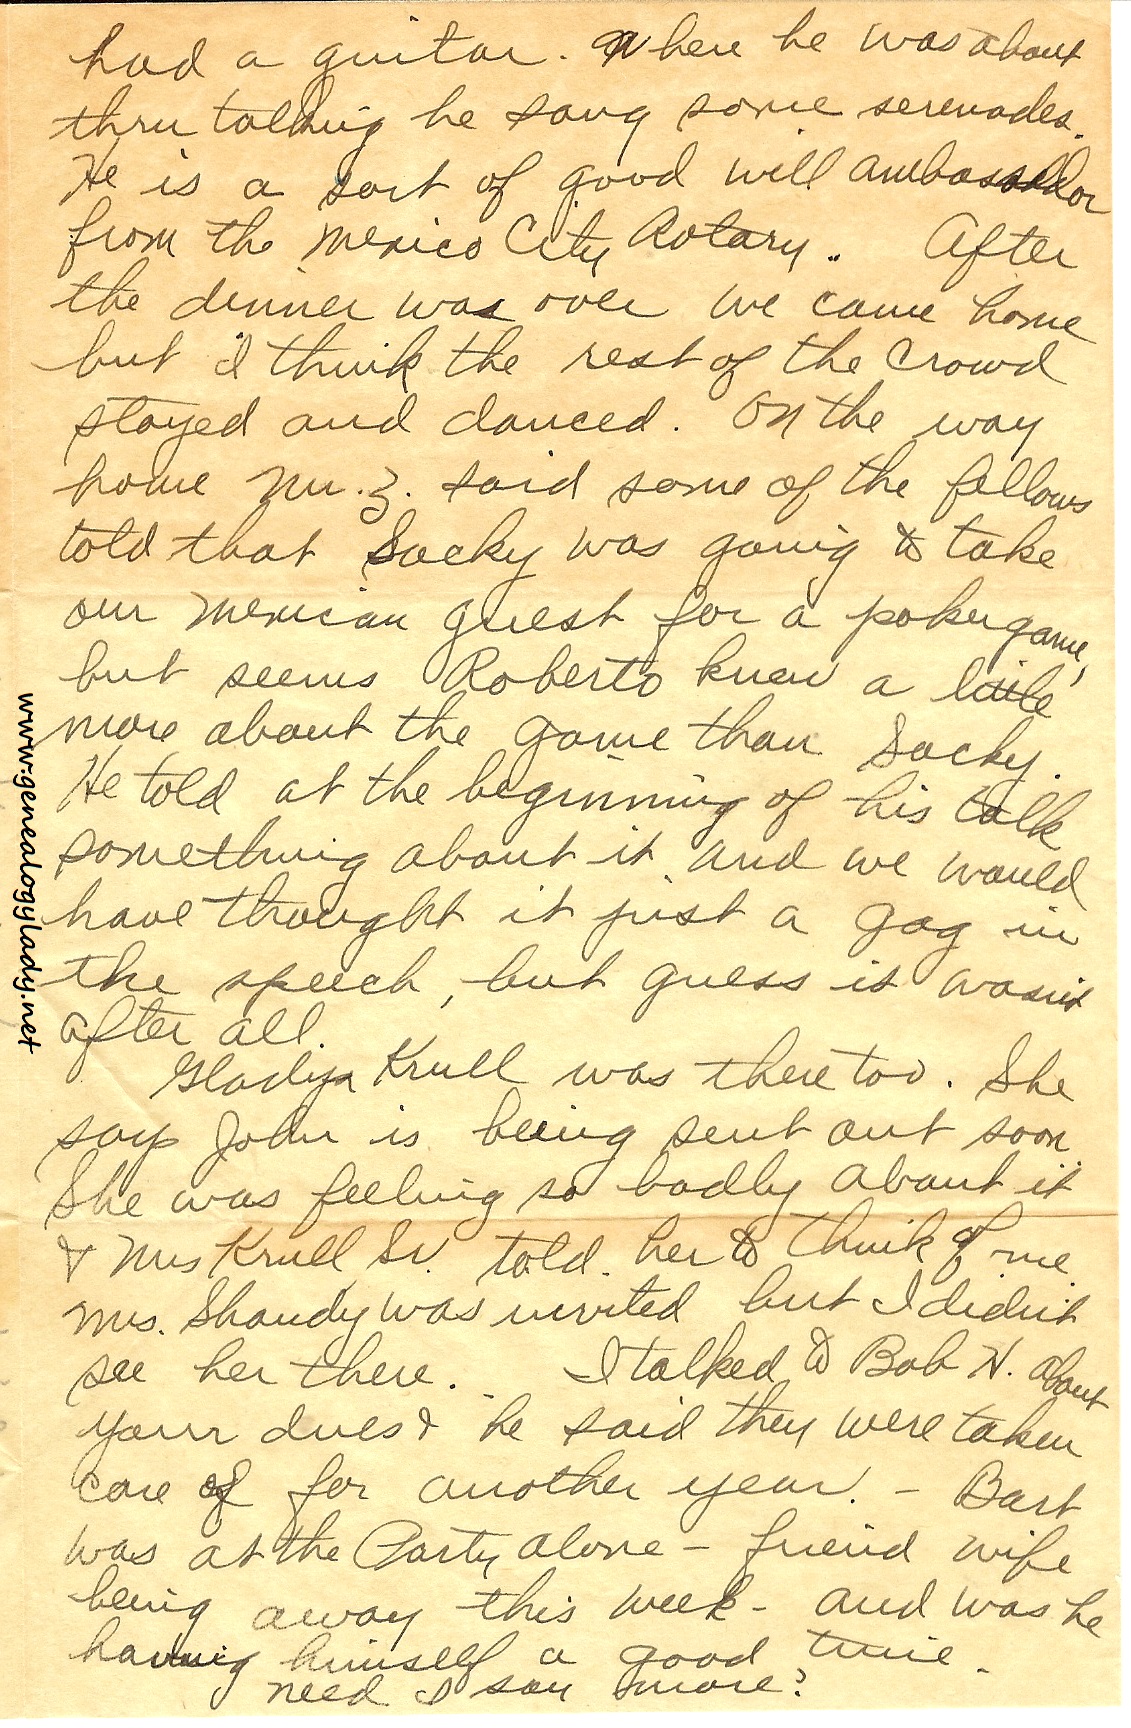 had a guitar. When he was about
thru talking he sang some serenades.
He is a sort of good will ambassador
from the Mexico City Rotary. After
the dinner was over we came home
but I think the rest of the crowd
stayed and danced. On the way
home Mr. Z. said some of the fellows
told that Socky was going to take
our Mexican guest for a poker game,
but seems Roberto knew a little
more about the game than Socky.
He told at the beginning of his talk
something about it and we would
have thought it just a gag in
the speech, but guess it wasn't
after all.
Gladys Krull was there too. She
says John is being sent out soon
She was feeling so badly about it
& Mrs Krull Sr. told her to think of me.
Mrs. Shandy was invited but I didn't
see her there. I talked to Bob H. about
your dues & he said they were taken
care of for another year. – Bart
was at the Party alone – friend wife
being away this week – and was he
having himself a good time.
need I say more?
www.genealogylady.net